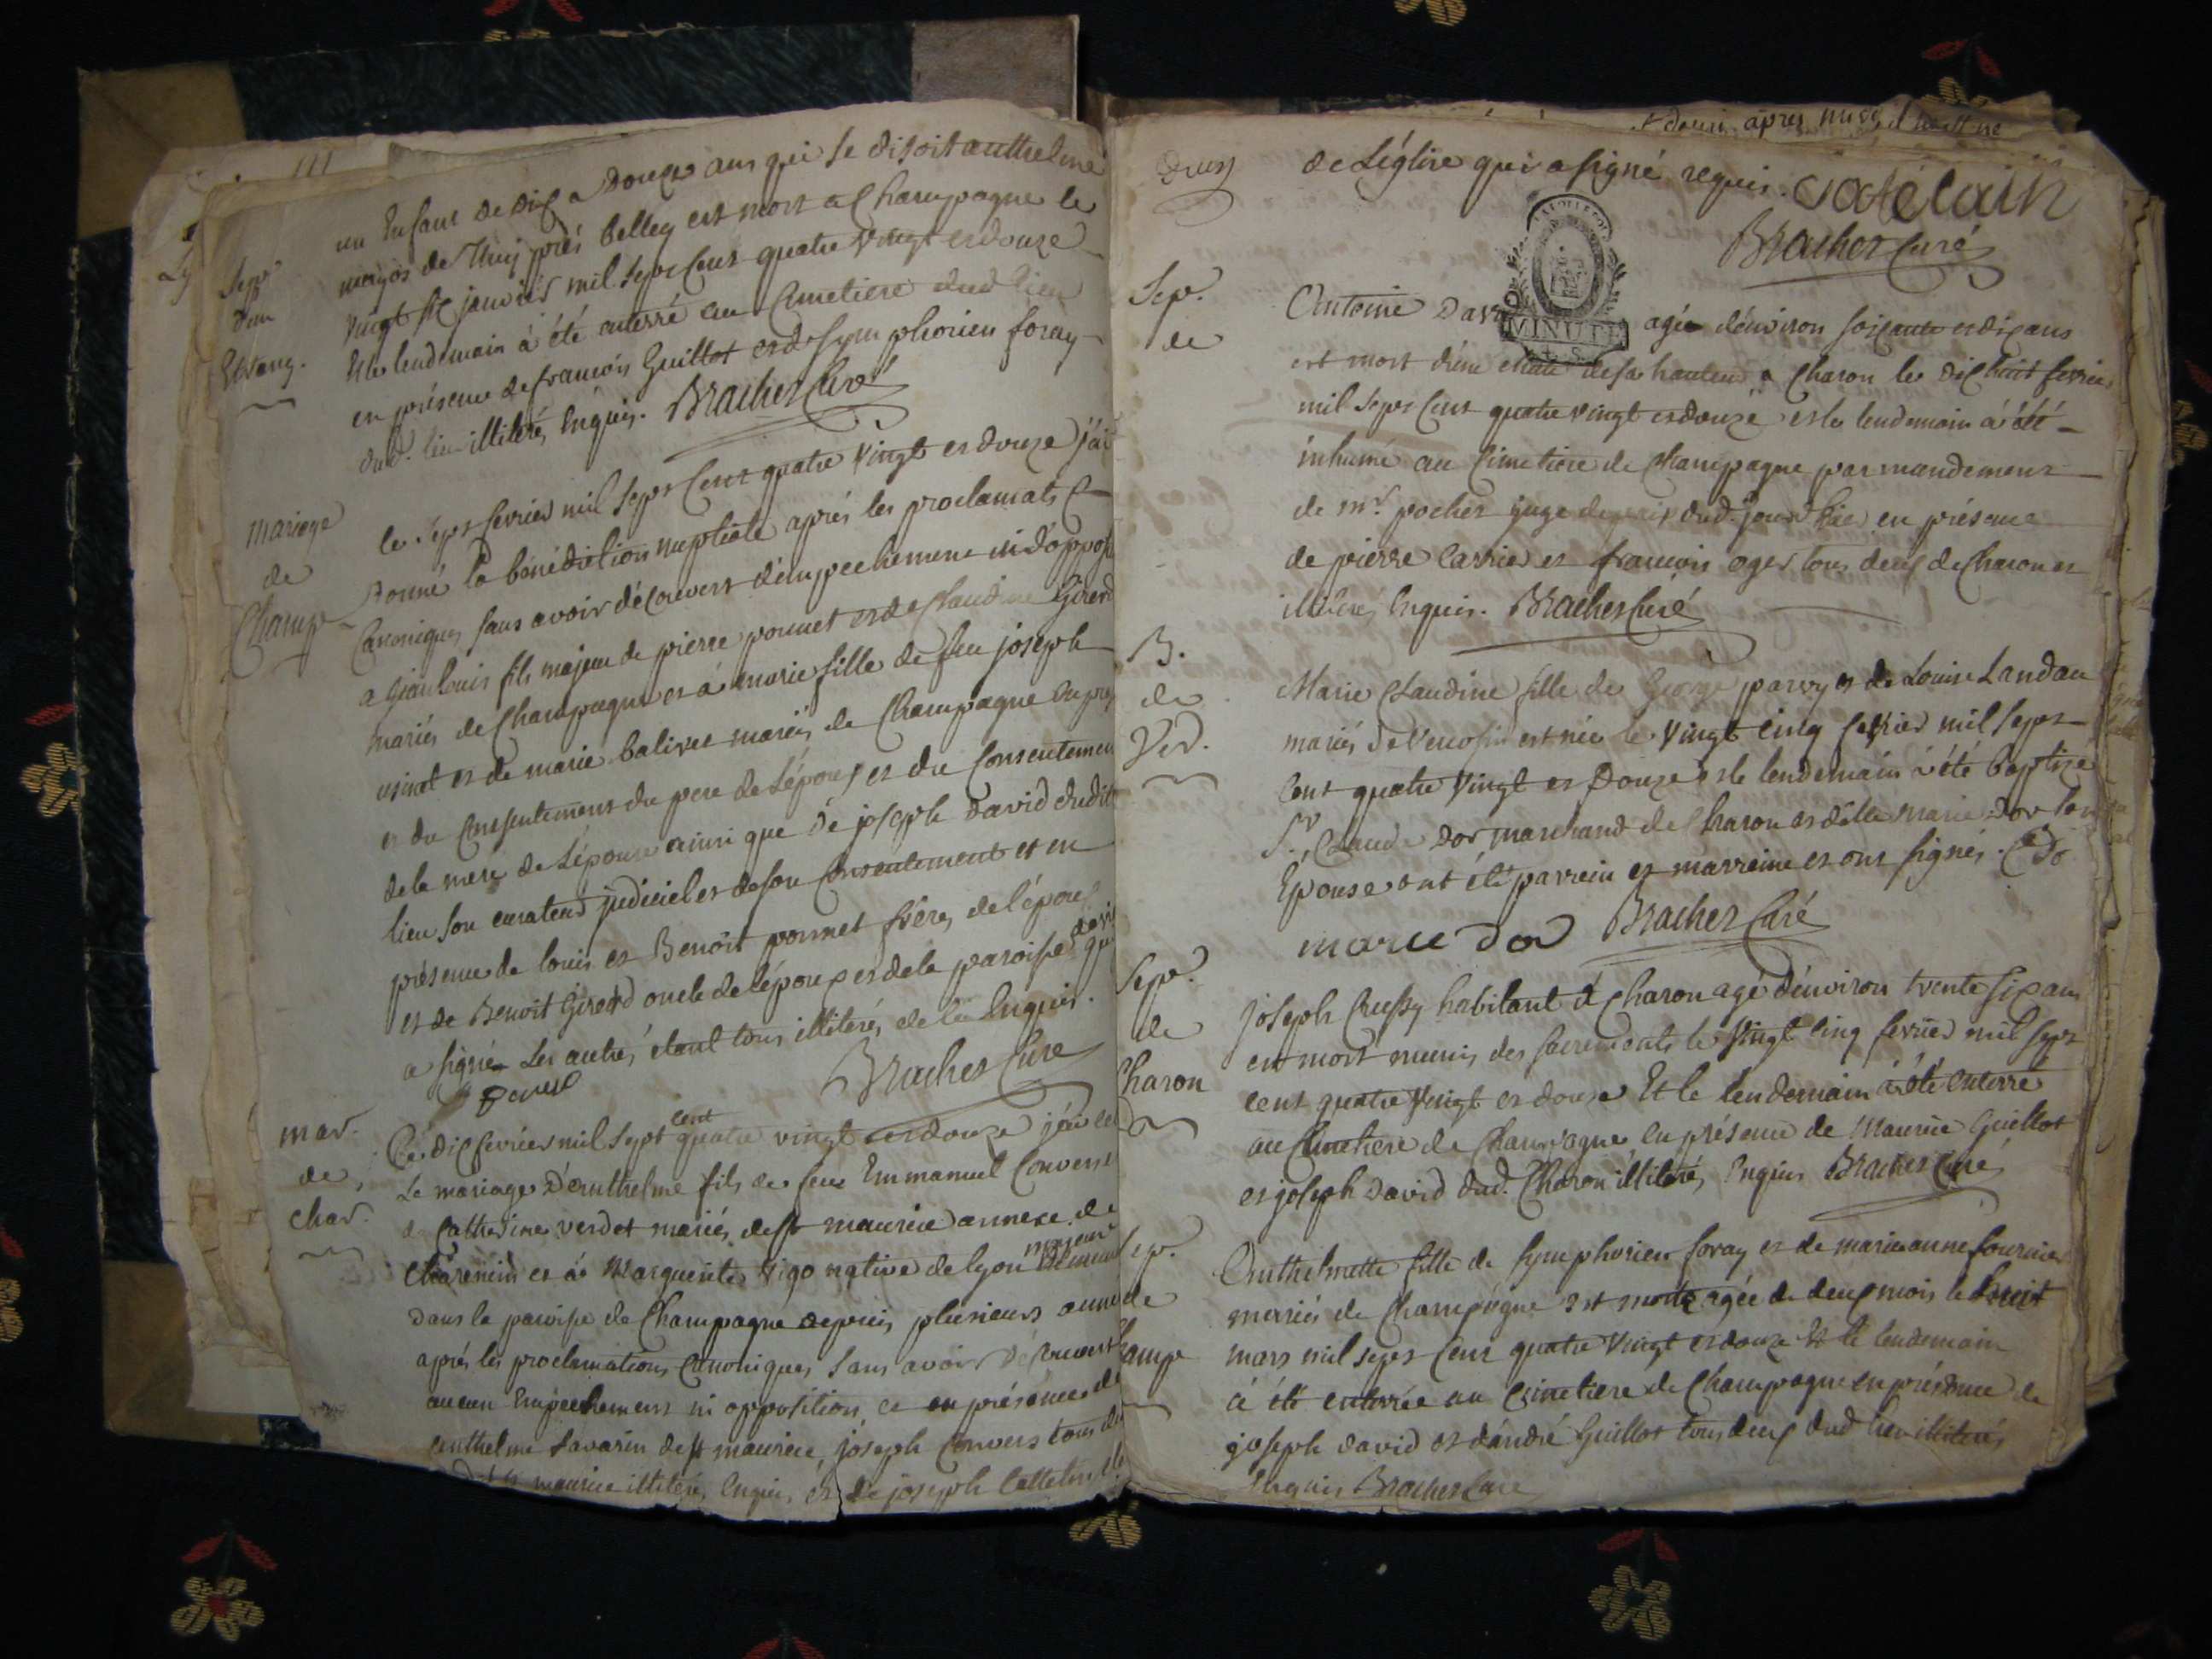 un Enfant de dix a Douze ans qui se disoit anthelme
Sep.
d'un
Etrang.
de Thuy près belley est mort a Champagne le
vingt six janvier mil sept cent quatre vingt et douze
Et le lendemain à été enterré au Cimetiere dud. lieu
en présence de francois Guillot et de symphorien foray
dud. lieu illiterés Enquis. Bracher Curé
mariage
de
Champ
le sept fevrier mil sept cent quatre vingt et douze j'ai
donné la bénédiction nuptiale après les proclamats
Canoniques sans avoir découvert d'empechement ni d'oppos
a jean louis fils majeur de pierre ponnet et de Claudine Girerd
mariés de Champagne et à marie fille de feu joseph
et de marie balivet mariés de Champagne
et du Consentement du pere de l'époux et du Consentemen
de la mere de l'épouse ainsi que de joseph david dudit
lieu son curateur judiciel et de son Consentement et en
présence de louis et Benoit ponnet frères de l'époux
et de Benoit Girerd oncle de l'époux et de la paroisse
a signé Les autres étant tous illiterés de ce Enquis.
Bracher Curé
mar.
de
char.
Le dix fevrier mil sept cent quatre vingt et douze j'ai
Le mariage D'anthelme fils de feu Emmanuel Convert
& Catherine verdet mariés de st maurice annexe de
et à Marguerite Vigo native de lyon
majeure
dans la paroisse de Champagne depuis plusieurs anne
après les proclamations Canoniques, sans avoir découvert
aucun Empechement ni opposition, ce en présence de
anthelme Savarin de st maurice, joseph Convers tous
maurice illiterés Enquis, et de joseph
de L'église qui a signé requis.
Bracher Curé
MINUTE
Sep.
de
Antoine agé d'environ soixante et dix ans
est mort d'une chute de sa hauteur a Charon le dix huit fevrier
mil sept cent quatre vingt et douze et le lendemain à été
inhumé au Cimetiere de Champagne par mandement
de mr. pochet juge de paix dud. jour d'hier en présence
de pierre Carrier et francois oger tous deux de Charon et
illiterés Enquis. Bracher Curé
B.
de
Ver.
Marie Claudine fille de George parvy et de Louise Landau
mariés de est née le vingt cinq fevrier mil sept
Cent quatre vingt et Douze et le lendemain à été baptizé
Sr. Claude Dor marchand de Charon et delle Marie Dor son
Epouse ont été parrein et marreine et ont signés. C Dor
marie dor Bracher Curé
Sep.
de
Charon
joseph habitant à Charon agé d'environ trente six ans
est mort munis des sacrements le vingt cinq fevrier mil sept
cent quatre vingt et douze Et le lendemain à été enterré
au Cimetiere de Champagne En présence de Maurice Guillot
et joseph David dud. Charon illiterés Enquis Bracher Curé
Sep.
de
Champ
Anthelmette fille de symphorien foray et de marie anne fournier
mariés de Champagne est morte agée de deux mois le huit
mars mil sept Cent quatre vingt et douze Et le lendemain
à été enterrée au Cimetiere de Champagne en présence de
joseph david et d'andré Guillot tous deux dud lieu illiterés
Enquis Bracher Curé